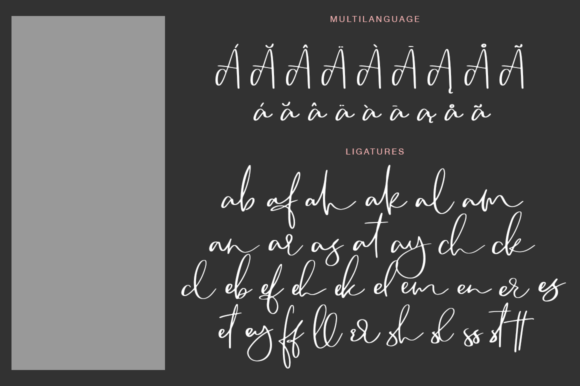 MULTILANGUAGE
Á Ă Â Ä À Ā Ą Å Ã
á ă â ä à ā ą å ã
LIGATURES
ab af ah ak al am
an ar as at ay ch ck
cl eb ef eh ek el em en er es
et ey ff ll sh sl ss st tt